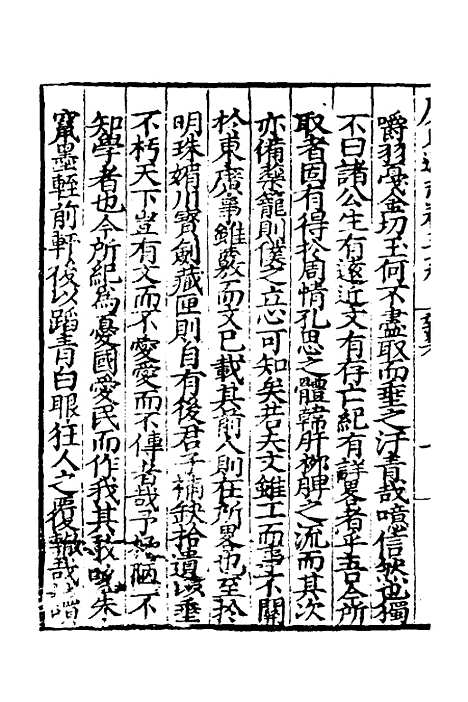 嚼羽戞金切玉何不盡取而垂之汗青哉噫信然也獨
不曰諸公生有遠近文有存亡紀有詳畧者乎吾今所
取者固有得扵周情孔思之體韓肝柳脾之流而其次
亦備藥籠則僕之立心可知矣若夫文雖工而事不關
扵東廣事雖覈而文已載其前人則在所畧也至扵
明珠媚川寳劍藏匣則自有後君子補缺拾遺以垂
不朽天下豈有文而不愛愛而不傳者哉予固陋不
知學者也今所紀為憂國愛民而作我其我朱
竄墨輊前軒後以蹈青白眼狂人之覆轍哉